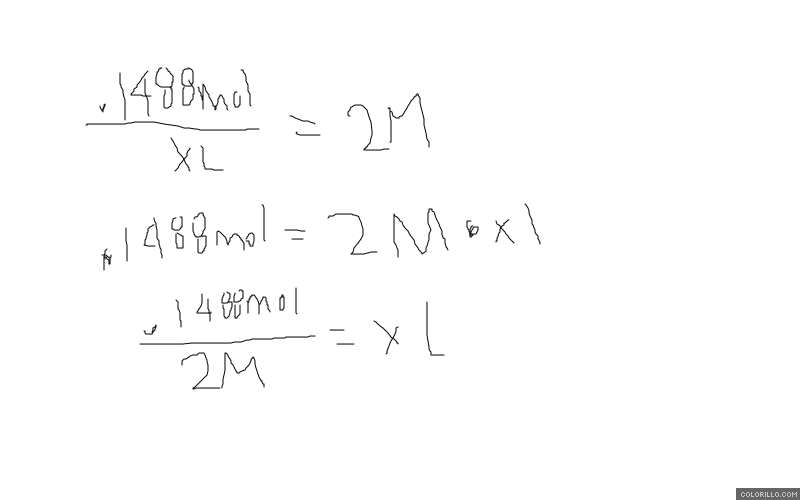 .1488mol / xL = 2M
.1488mol = 2M • xl
.1488mol / 2M = xL
COLORILLO.COM